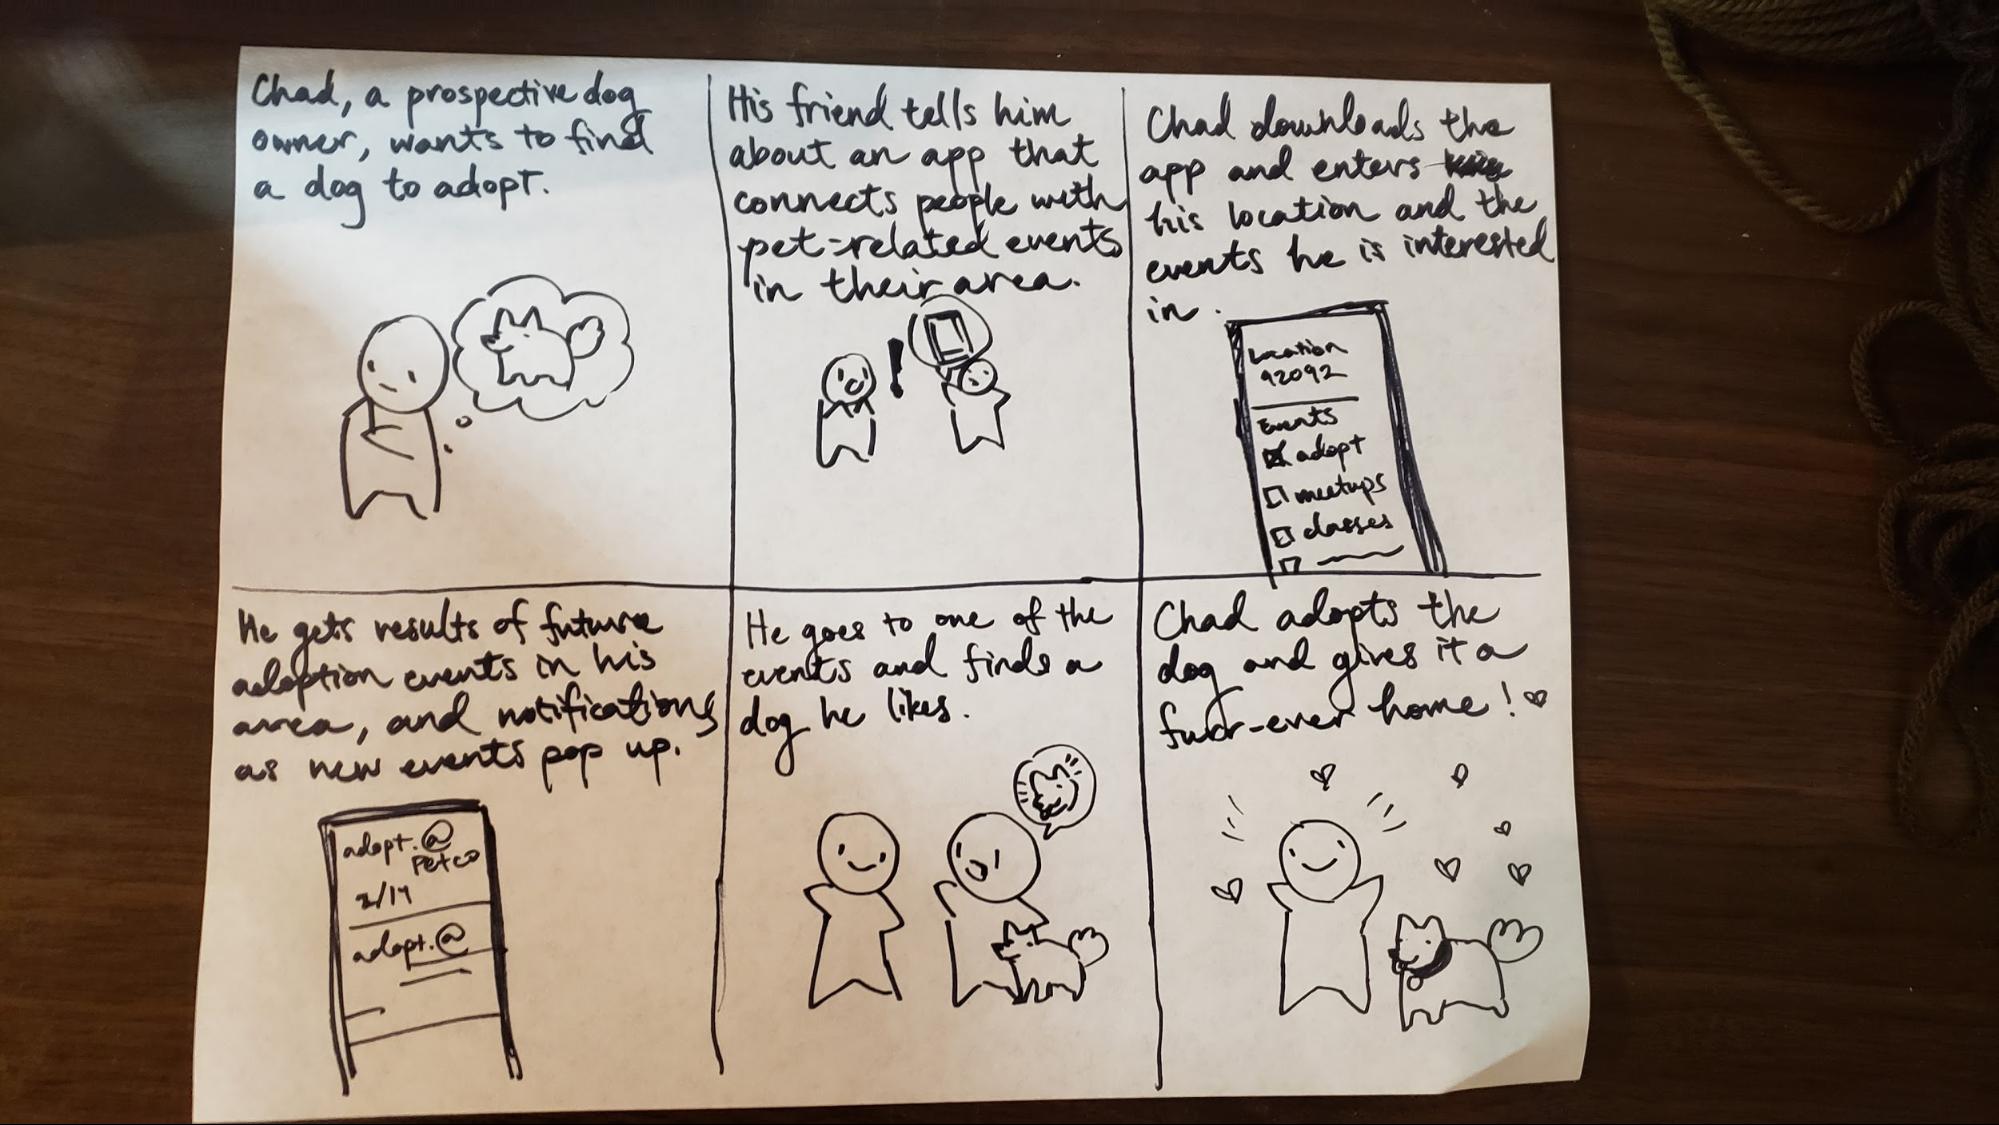 Chad, a prospective dog
owner, wants to find
a dog to adopt.
His friend tells him
about an app that
connects people with
pet-related events
in their area.
!
Chad downloads the
app and enters
his location and the
events he is interested
in.
Location
92092
Events
adopt
meetups
classes
He gets results of future
adoption events in his
area, and notifications
as new events pop up.
adopt.@
Petco
adopt.@
He goes to one of the
events and finds a
dog he likes.
Chad adopts the
dog and gives it a
furr-ever home!